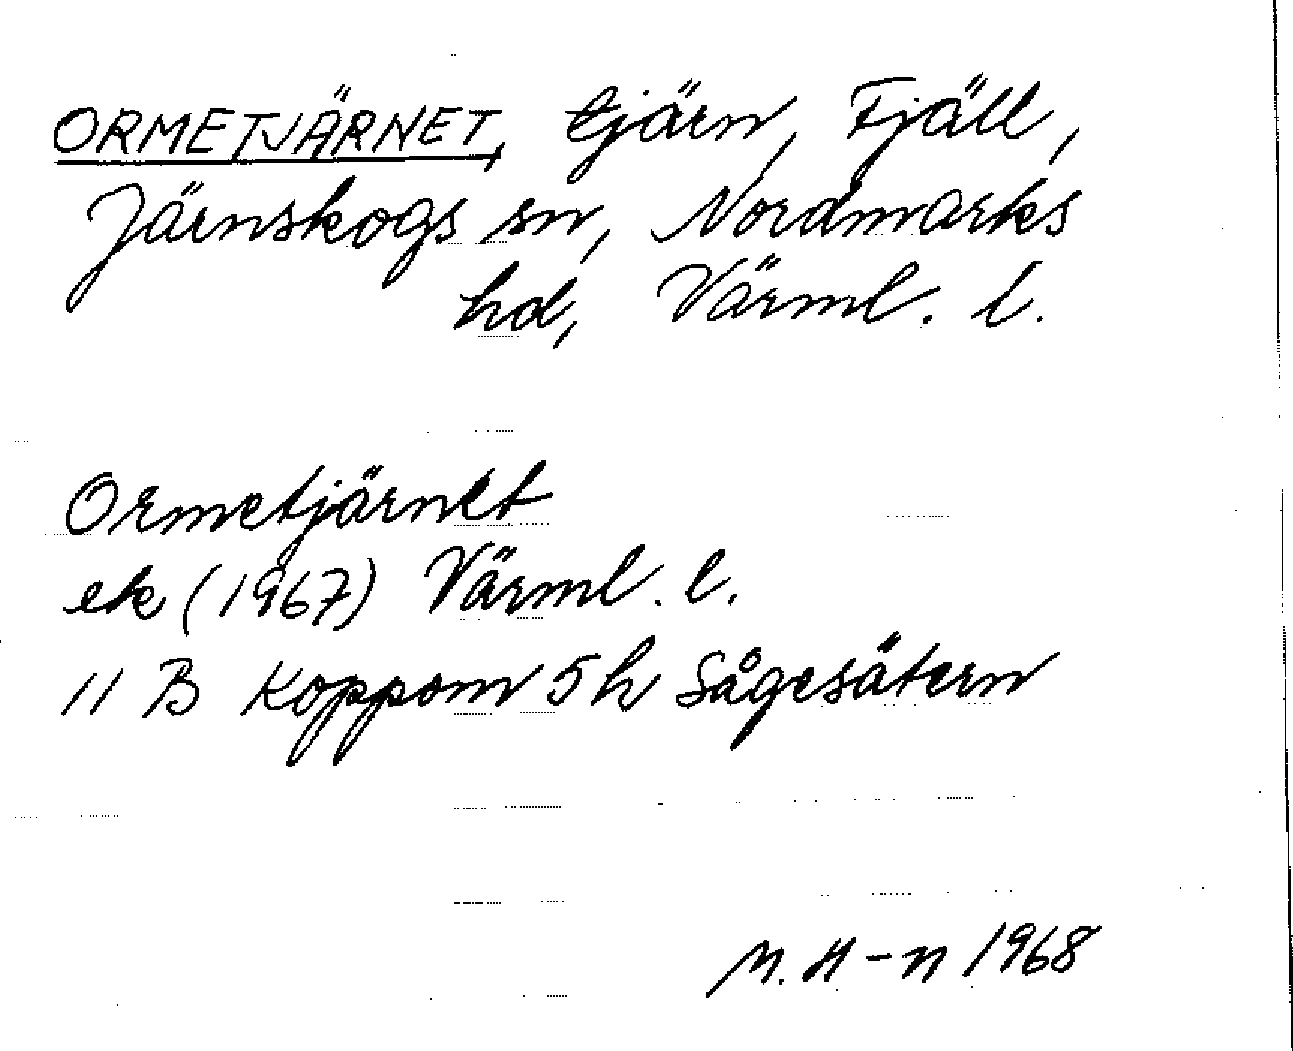 ORMETJÄRNET, tjärn, Fjäll,
Järnskogs sn, Nordmarks
hd, Värml. l.
Ormetjärnet
ek (1967) Värml. l.
11 B Koppom 5h Sågesätern
M. H-n 1968